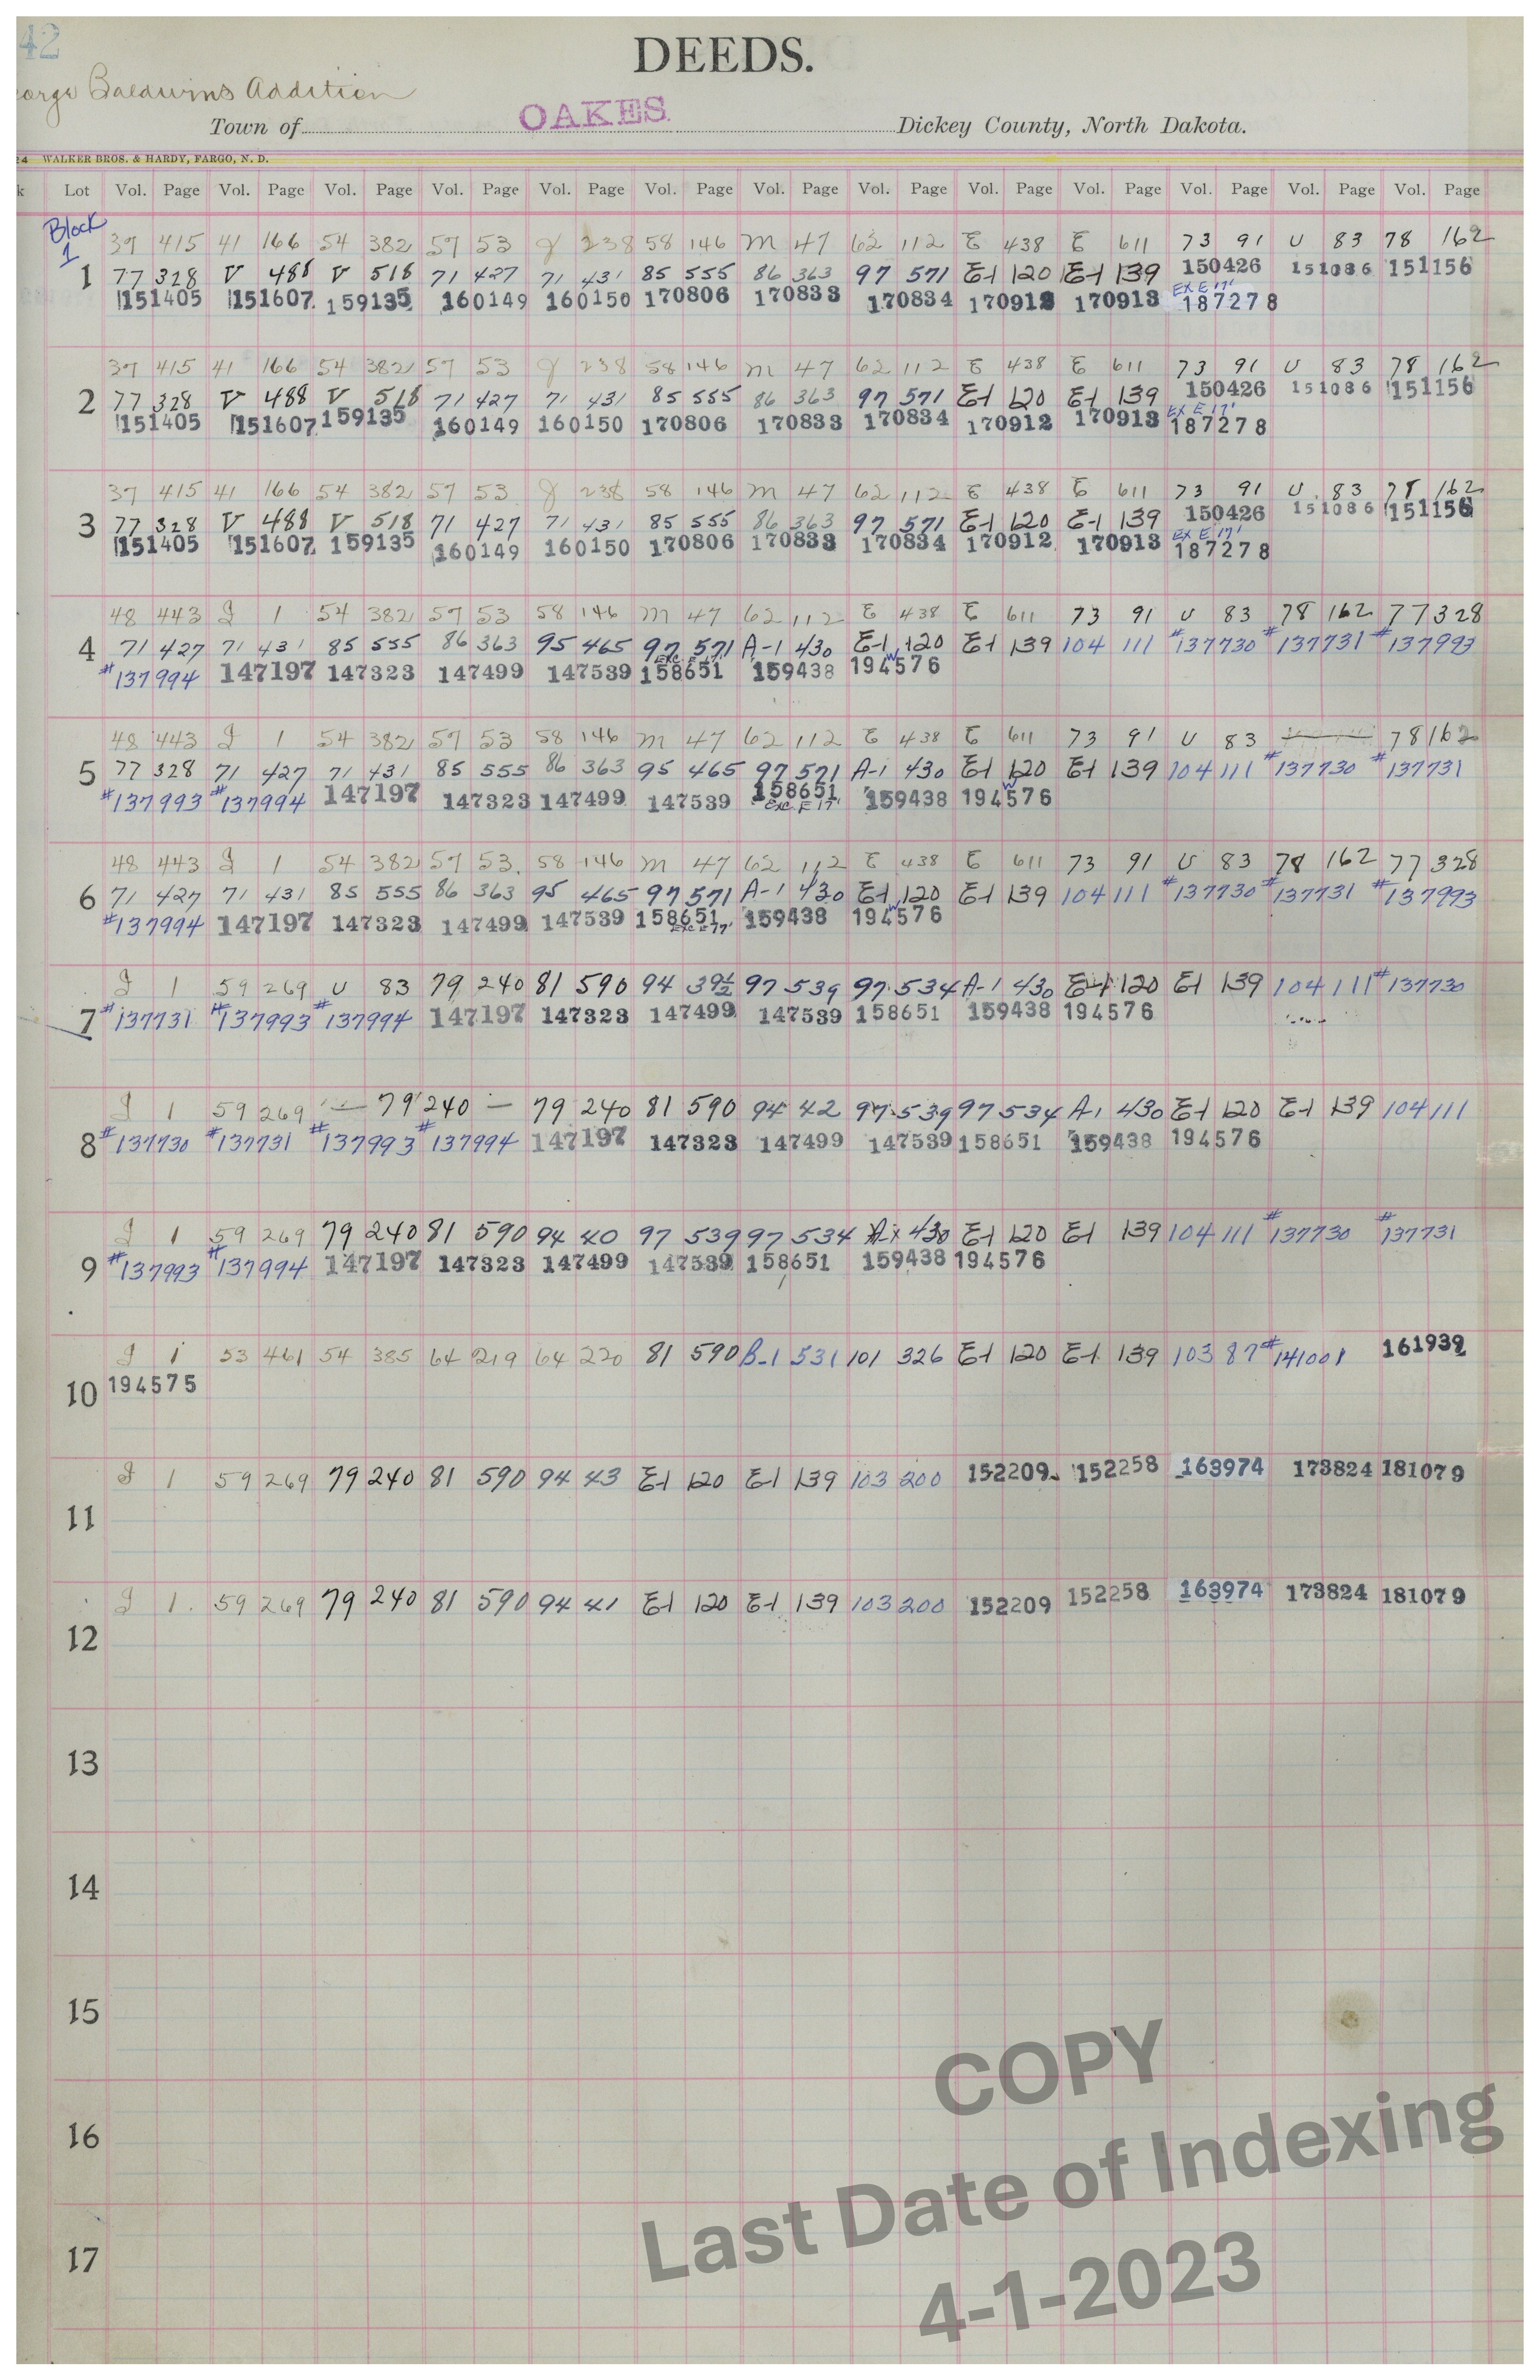 42
DEEDS.
eorge Baldwins Addition
Town of OAKES Dickey County, North Dakota.
24 WALKER BROS. & HARDY, FARGO, N. D.
k Lot Vol. Page Vol. Page Vol. Page Vol. Page Vol. Page Vol. Page Vol. Page Vol. Page Vol. Page Vol. Page Vol. Page Vol. Page Vol. Page
Block 1
37 415 41 166 54 382 57 53 J 238 58 146 M 47 62 112 E 438 E 611 73 91 U 83 78 162
1 77 328 V 488 V 518 71 427 71 431 85 555 86 363 97 571 E-1 120 E-1 139 150426 151086 151156
151405 151607 159135 160149 160150 170806 170833 170834 170912 170913 EX E 17' 187278
37 415 41 166 54 382 57 53 J 238 58 146 M 47 62 112 E 438 E 611 73 91 U 83 78 162
2 77 328 V 488 V 518 71 427 71 431 85 555 86 363 97 571 E-1 120 E-1 139 150426 151086 151156
151405 151607 159135 160149 160150 170806 170833 170834 170912 170913 EX E 17' 187278
37 415 41 166 54 382 57 53 J 238 58 146 M 47 62 112 E 438 E 611 73 91 U 83 78 162
3 77 328 V 488 V 518 71 427 71 431 85 555 86 363 97 571 E-1 120 E-1 139 150426 151086 151156
151405 151607 159135 160149 160150 170806 170833 170834 170912 170913 EX E 17' 187278
48 443 I 1 54 382 57 53 58 146 M 47 62 112 E 438 E 611 73 91 U 83 78 162 77 328
4 71 427 71 431 85 555 86 363 95 465 97 571 A-1 430 E-1 120 E-1 139 104 111 #137730 #137731 #137993
#137994 147197 147323 147499 147539 Exc. E 17' 158651 159438 194576
48 443 I 1 54 382 57 53 58 146 M 47 62 112 E 438 E 611 73 91 U 83 78 162
5 77 328 71 427 71 431 85 555 86 363 95 465 97 571 A-1 430 E-1 120 E-1 139 104 111 #137730 #137731
#137993 #137994 147197 147323 147499 147539 158651 Exc. E 17' 159438 194576
48 443 I 1 54 382 57 53 58 146 M 47 62 112 E 438 E 611 73 91 U 83 78 162 77 328
6 71 427 71 431 85 555 86 363 95 465 97 571 A-1 430 E-1 120 E-1 139 104 111 #137730 #137731 #137993
#137994 147197 147323 147499 147539 158651 Exc E 17' 159438 194576
I 1 59 269 U 83 79 240 81 590 94 39½ 97 539 97 534 A-1 430 E-1 120 E-1 139 104 111 #137730
7 #137731 #137993 #137994 147197 147323 147499 147539 158651 159438 194576
I 1 59 269 — 79 240 — 79 240 81 590 94 42 97 539 97 534 A-1 430 E-1 120 E-1 139 104 111
8 #137730 #137731 #137993 #137994 147197 147323 147499 147539 158651 159438 194576
I 1 59 269 79 240 81 590 94 40 97 539 97 534 A-1 430 E-1 120 E-1 139 104 111 #137730 #137731
9 #137993 #137994 147197 147323 147499 147539 158651 159438 194576
I 1 53 461 54 385 64 219 64 220 81 590 B-1 531 101 326 E-1 120 E-1 139 103 87 #141001 161939
10 194575
I 1 59 269 79 240 81 590 94 43 E-1 120 E-1 139 103 200 152209 152258 163974 173824 181079
11
I 1 59 269 79 240 81 590 94 41 E-1 120 E-1 139 103 200 152209 152258 163974 173824 181079
12
13
14
15
16
17
COPY
Last Date of Indexing
4-1-2023